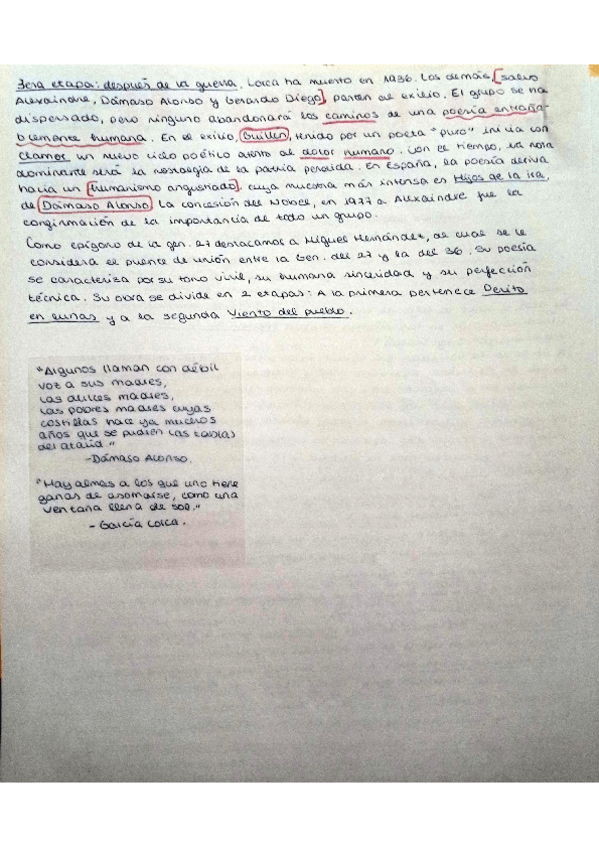 3era etapa: después de la guerra. Lorca ha muerto en 1936. Los demás, [salvo
Alexaindre, Dámaso Alonso y Gerardo Diego] parten al exilio. El grupo se ha
dispersado, pero ninguno abandonará los caminos de una poesía entraña-
blemente humana. En el exilio, Guillén, tenido por un poeta "puro" inicia con
Clamor un nuevo ciclo poético atento al dolor humano. Con el tiempo, la nota
dominante será la nostalgia de la patria perdida. En España, la poesía deriva
hacia un [humanismo angustiado], cuya muestra más intensa es Hijos de la ira,
de Dámaso Alonso. La concesión del Nobel, en 1977 a Alexaindre fue la
confirmación de la importancia de todo un grupo.
Como epígono de la gen. 27 destacamos a Miguel Hernández, al cual se le
considera el puente de unión entre la Gen. del 27 y la del 36. Su poesía
se caracteriza por su tono viril, su humana sinceridad y su perfección
técnica. Su obra se divide en 2 etapas: A la primera pertenece Perito
en lunas y a la segunda Viento del pueblo.
"Algunos llaman con débil
voz a sus madres,
las dulces madres,
las pobres madres cuyas
costillas hace ya muchos
años que se pudren las tablas
del ataúd."
-Dámaso Alonso.
"Hay almas a los que uno tiene
ganas de asomarse, como una
ventana llena de sol."
- García Lorca.